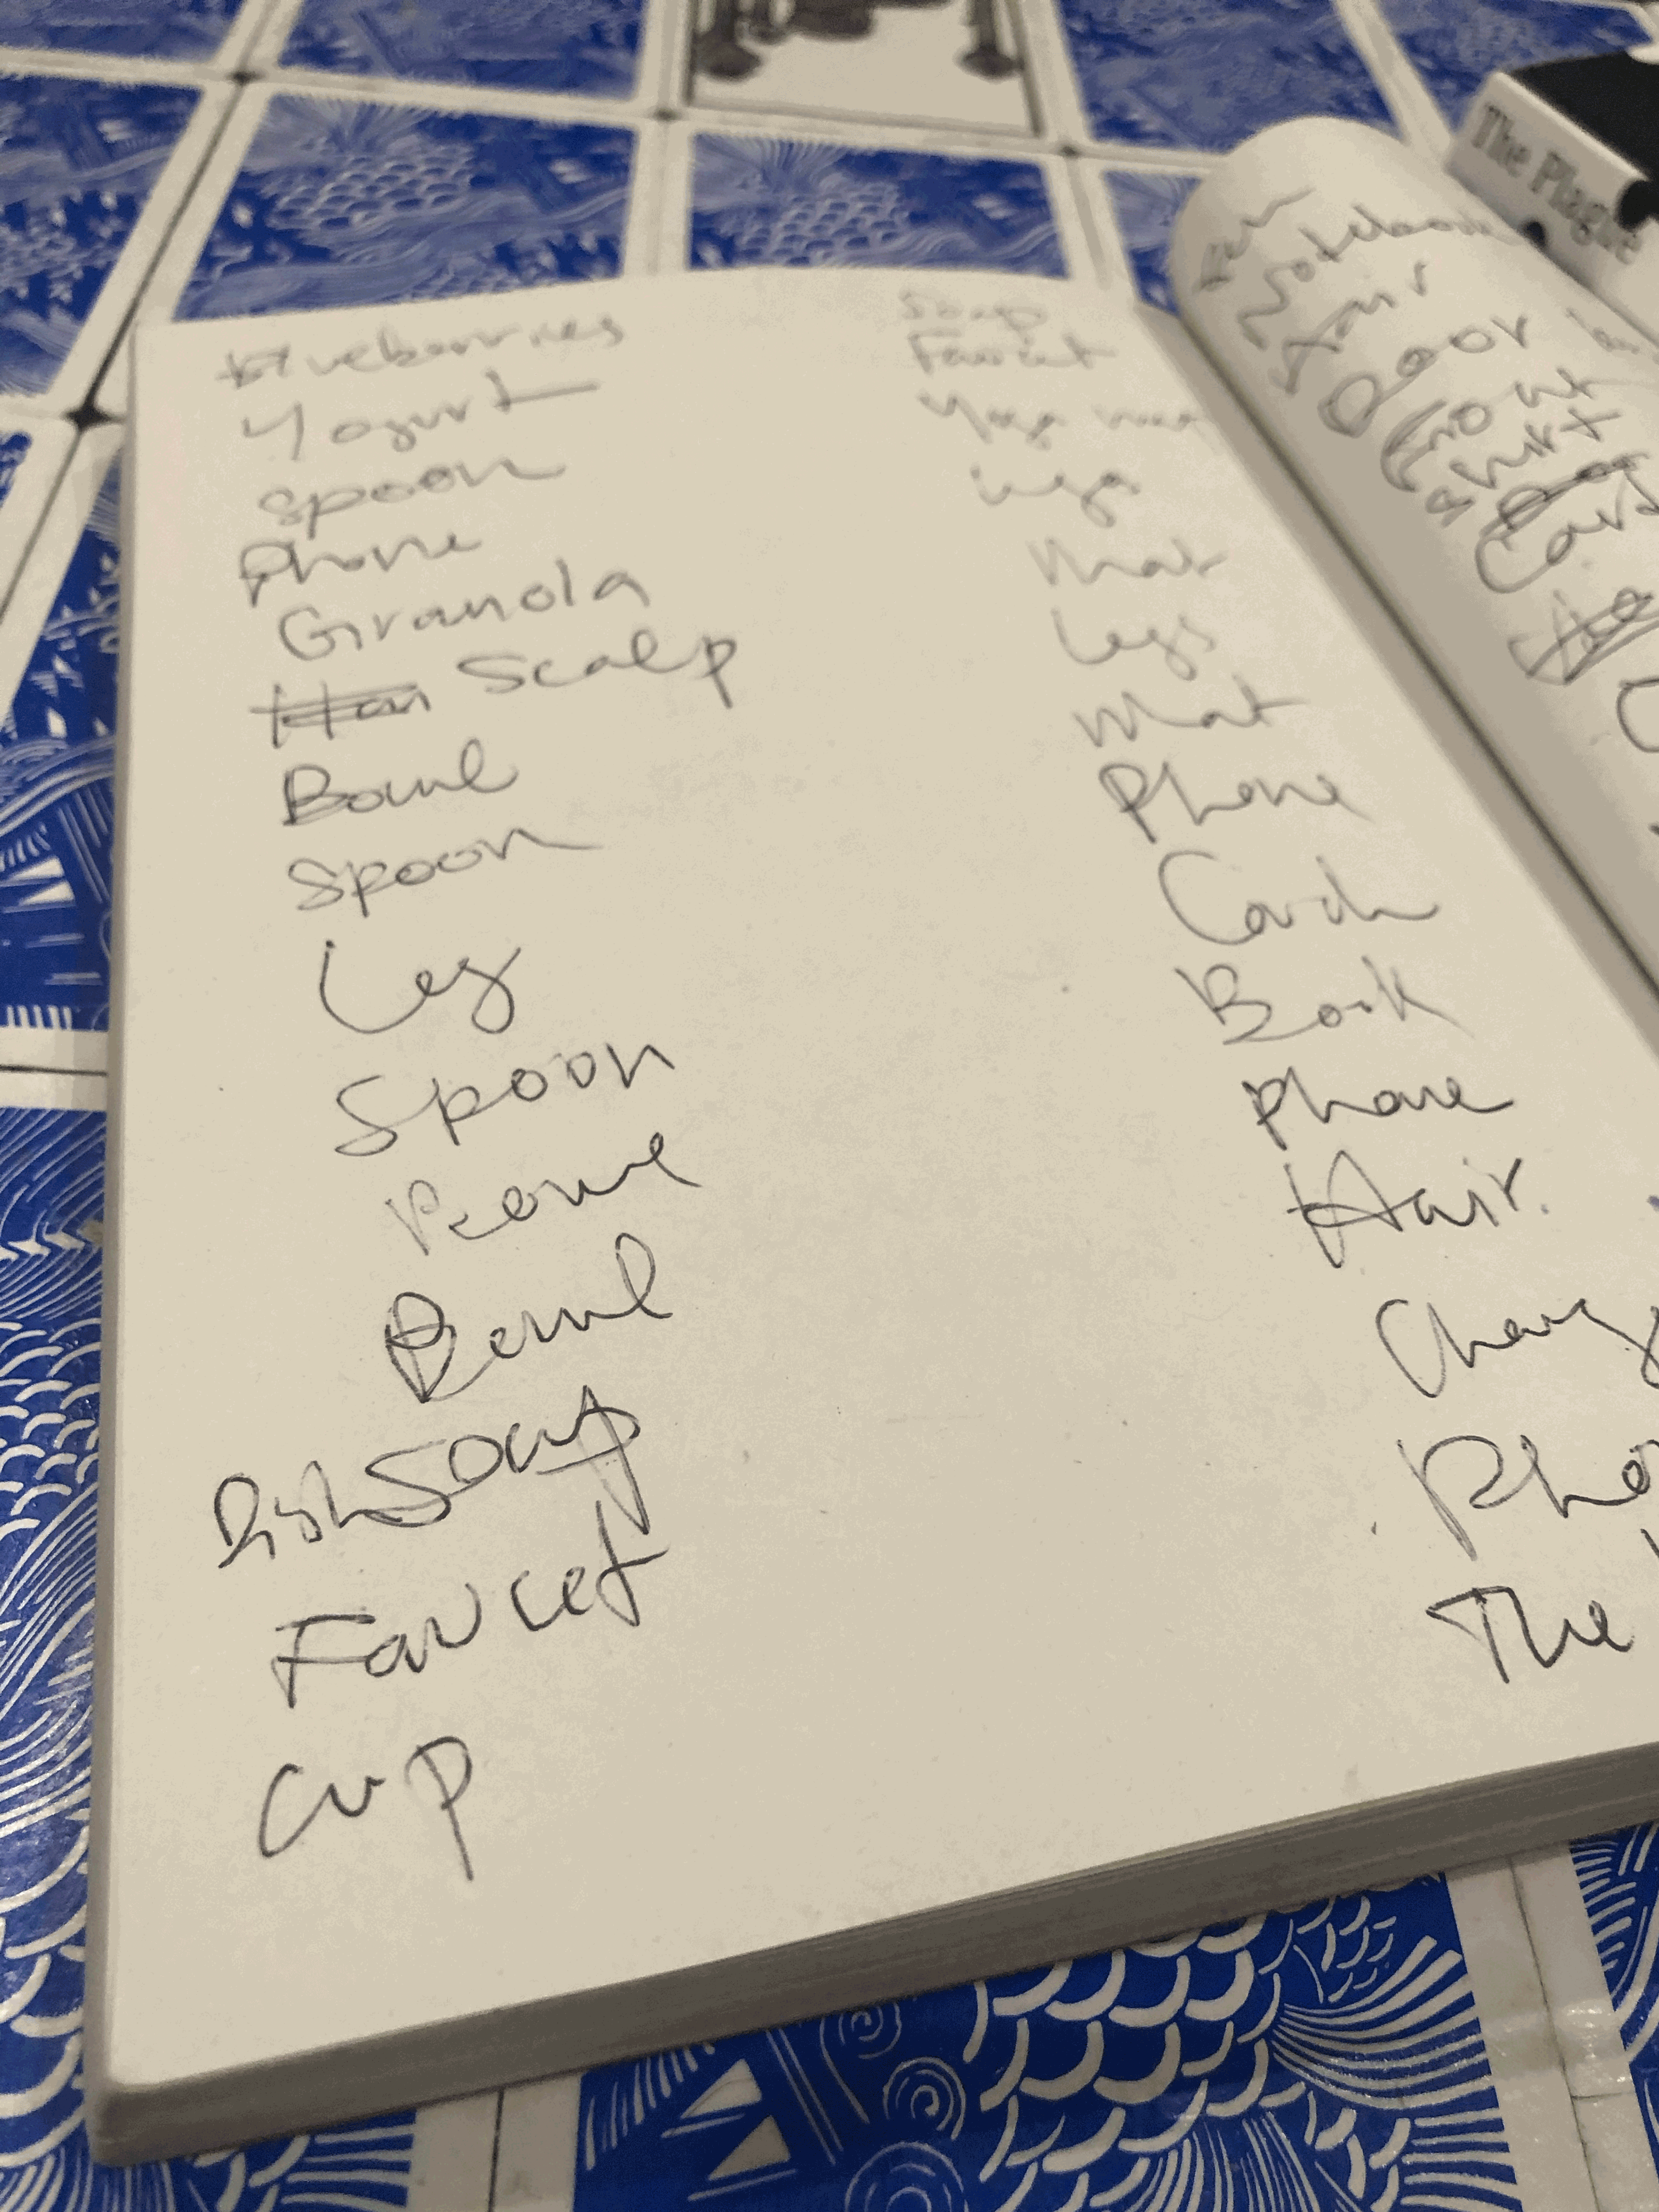 Blueberries
Yogurt
Spoon
Phone
Granola
Scalp
Bowl
Spoon
Leg
Spoon
Bowl
Dish Soap
Faucet
Cup
Soap
Faucet
Yoga mat
Legs
Mat
Legs
Mat
Phone
Card
Book
Phone
Hair.
Charg
Pho
The
Notebook
Hair
Door
Shirt
Card
The Plague